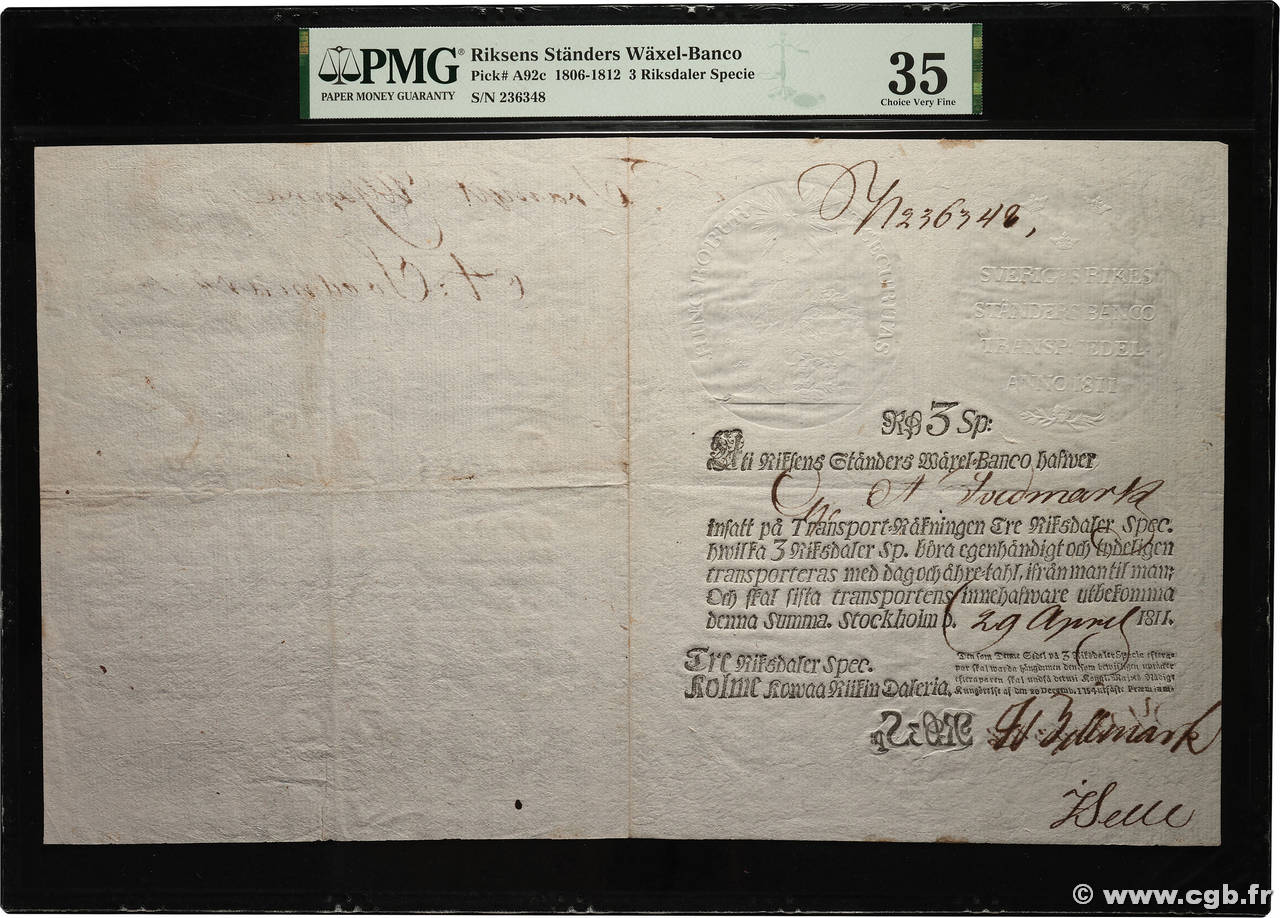 PMG® Riksens Ständers Wäxel-Banco
Pick# A92c 1806-1812 3 Riksdaler Specie
S/N 236348
PAPER MONEY GUARANTY
35
Choice Very Fine
N 236348,
HINC ROBUR SECURITAS
SVERIGES RIKES
STÄNDERS BANCO
TRANSP. SEDEL
ANNO 1811
RD 3 Sp:
Uti Riksens Ständers Wäxel-Banco hafwer
insatt på Transport-Räkningen Tre Riksdaler Spec.
hwilka 3 Riksdaler Sp. böra egenhändigt och tydeligen
transporteras med dag och åhre-tahl, ifrån man til man;
Och skal sista transportens innehafware utbekomma
denna Summa. Stockholm d. 29 April 1811.
Tre Riksdaler Spec.
Kolme Kowaa Riikin Daleria.
Den som Denne Sedel på 3 Riksdaler Specie eftera-
par skal warda hängd, men den som bewisligen uptäcker
efteraparen skal undfå detuti Kongl. Maj:ts Nådigt
Kungörelse af den
RD 3 Sp
© www.cgb.fr